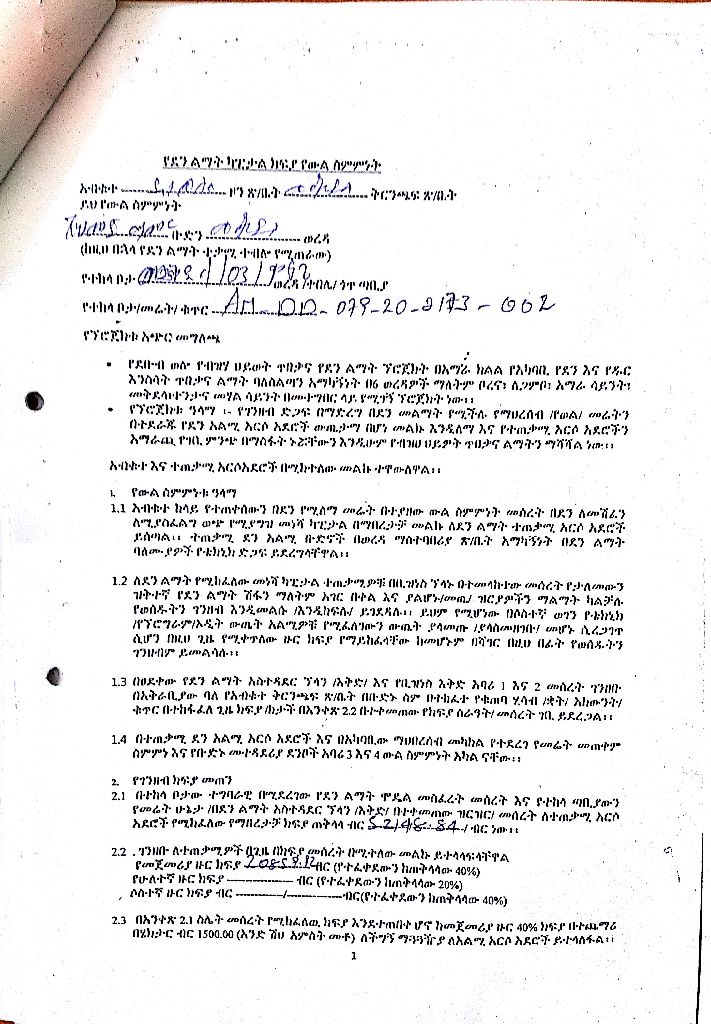 የደን ልማት ካፒታል ክፍያ የውል ስምምነት
አብቁተ ዞን ጽ/ቤት ቅርንጫፍ ጽ/ቤት
ይህ የውል ስምምነት
ቡድን ወረዳ
(ከዚህ በኋላ የደን ልማት ተቃሚ ተብሎ የሚጠራው)
የተከላ ቦታ /03/ ወረዳ /ቀበሌ/ ጎጥ ጣቢያ
የተከላ ቦታ/መሬት/ ቁጥር AM-DD-079-20-2173-002
የፕሮጀክቱ አጭር መግለጫ
• የደቡብ ወሎ የብዝሃ ህይወት ጥበቃና የደን ልማት ፕሮጀክት በአማራ ክልል የአካባቢ የደን እና የዱር
እንስሳት ጥበቃና ልማት ባለስልጣን አማካኝነት በ6 ወረዳዎች ማለትም ቦረና፣ ለጋምቦ፣ አማራ ሳይንት፣
መቅደላ፣ተንታና መሃል ሳይንት በመተግበር ላይ የሚገኝ ፕሮጀክት ነው፡፡
• የፕሮጀክቱ ዓላማ ፡- የገንዘብ ድጋፍ በማድረግ በደን መልማት የሚችሉ የማህበረሰብ /የወል/ መሬትን
በተደራጁ የደን አልሚ አርሶ አደሮች ውጤታማ በሆነ መልኩ እንዲለማ እና የተጠቃሚ አርሶ አደሮችን
አማራጨ የገቢ ምንጭ በማስፋት ኑሯቸውን እንዲሁም የብዝሀ ህይዎት ጥበቃና ልማትን ማሻሻል ነው፡፡
አብቁተ እና ተጠቃሚ አርሶአደሮች በሚከተለው መልኩ ተዋውለዋል፡፡
1. የውል ስምምነቱ ዓላማ
1.1 አብቁተ ከላይ የተጠቀሰውን በደን የሚለማ መሬት በተያዘው ውል ስምምነት መሰረት በደን ለመሸፈን
ለሚያስፈልግ ወጭ የሚያግዝ መነሻ ካፒታል በማበረታቻ መልኩ ለደን ልማት ተጠቃሚ አርሶ አደሮች
ይሰጣል፡፡ ተጠቃሚ ደን አልሚ ቡድኖች በወረዳ ማስተባበሪያ ጽ/ቤት አማካኝነት በደን ልማት
ባለሙያዎች የቴክኒክ ድጋፍ ይደረግላቸዋል፡፡
1.2 ለደን ልማት የሚከፈለው መነሻ ካፒታል ተጠቃሚዎቹ በቢዝነስ ፕላኑ በተመላከተው መሰረት የታለመውን
ዝቅተኛ የደን ልማት ሽፋን ማለትም አገር በቀል እና ያልሆኑ/መጤ/ ዝርያዎችን ማልማት ካልቻሉ
የወሰዱትን ገንዘብ እንዲመልሱ /እንዲከፍሉ/ ይገደዳሉ፡፡ ይህም የሚሆነው በሶስተኛ ወገን የቴክኒክ
/የፕሮግራም/ኦዲት ውጤት አልሚዎቹ የሚፈለገውን ውጤት ያላመጡ /ያላስመዘገቡ/ መሆኑ ሲረጋገጥ
ሲሆን በዚህ ጊዜ የሚቀጥለው ዙር ክፍያ የማይከፈላቸው ከመሆኑም በሻገር በዚህ በፊት የወሰዱትን
ገንዘብም ይመልሳሉ፡፡
1.3 በፀደቀው የደን ልማት አስተዳደር ፕላን /እቅድ/ እና የቢዝነስ እቅድ አባሪ 1 እና 2 መሰረት ገንዘቡ
በአቅራቢያው ባለ የአብቁተ ቅርንጫፍ ጽ/ቤት በቡድኑ ስም በተከፈተ የቁጠባ ሂሳብ /ቋት/ አካውንት/
ቁጥር በተከፋፈለ ጊዜ ክፍያ /ከታች በአንቀጽ 2.2 በተቀመጠው የክፍያ ስራዓት/ መሰረት ገቢ ይደረጋል፡፡
1.4 በተጠቃሚ ደን አልሚ አርሶ አደሮች እና በአካባቢው ማህበረሰብ መካከል የተደረገ የመሬት መጠቀም
ስምምነ እና የቡድኑ መተዳደሪያ ደንቦች አባሪ 3 እና 4 ውል ስምምነት አካል ናቸው፡፡
2. የገንዘብ ክፍያ መጠን
2.1 በተከላ ቦታው ተግባራዊ በሚደረገው የደን ልማት ሞዴል መስፈረት መሰረት እና የተከላ ጣቢያውን
የመሬት ሁኔታ /በደን ልማት አስተዳደር ፕላን /እቅድ/ በተቀመጠው ዝርዝር/ መሰረት ለተጠቃሚ አርሶ
አደሮች የሚከፈለው የማበረታቻ ክፍያ ጠቅላላ ብር 52148.84 / ብር ነው፡፡
2.2 . ገንዘቡ ለተጠቃሚዎች በጊዜ በክፍያ መሰረት በሚተለው መልኩ ይተላለፍላቸዋል
የመጀመሪያ ዙር ክፍያ ብር (የተፈቀደውን ከጠቅላላው 40%)
የሁለተኛ ዙር ክፍያ ---------------- ብር (የተፈቀደውን ከጠቅላላው 20%)
ሶስተኛ ዙር ክፍያ ብር ------------/-------------ብር(የተፈቀደውን ከጠቅላላው 40%)
2.3 በአንቀጽ 2.1 ስሌት መሰረት የሚከፈለዉ ክፍያ እንደተጠበቀ ሆኖ ከመጀመሪያ ዙር 40% ክፍያ በተጨማሪ
በሄክታር ብር 1500.00 (አንድ ሽህ አምስት መቶ) ለችግኝ ማጓጓዥያ ለአልሚ አርሶ አደሮች ይተላለፋል፡፡
1